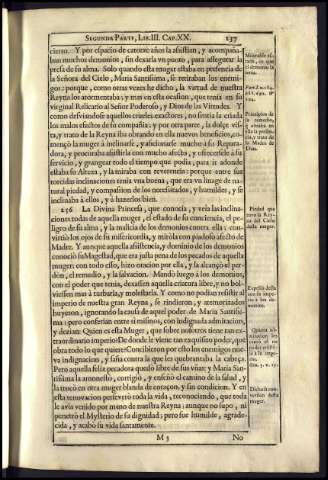 SEGUNDA PARTE, LIB. III. CAP. XX. 137
cierno. Y por espacio de catorce años la asistian, y acompaña-
ban muchos demonios, sin dexarla vn punto, para assegurar la
presa de su alma. Solo quando esta muger estaba en presencia de
la Señora del Cielo, Maria Santissima, se retiraban los enemi-
gos: porque, como otras vezes he dicho, la virtud de nuestra
Reyna los atormentaba; y mas en esta ocasion, que tenia en su
virginal Relicario al Señor Poderoso, y Dios de las Virtudes. Y
como desviandose aquellos crueles exactores, no sentia la criada
los malos efectos de su compañia; y por otra parte, la dulçe vis-
ta, y trato de la Reyna iba obrando en ella nuevos beneficios, co-
mençò la muger à inclinarse, y aficionarse mucho à su Repara-
dora, y procuraba assistirla con mucho afecto, y ofrecersele à su
servicio, y grangear todo el tiempo que podia, para ir adonde
estaba su Alteza, y la miraba con reverencia: porque entre sus
torcidas inclinaciones tenia vna buena, que era vn linage de na-
tural piedad, y compasion de los necessitados, y humildes, y se
inclinaba à ellos, y à hazerlos bien.
256 La Divina Princesa, que conocia, y veia las inclina-
ciones todas de aquella muger, el estado de su conciencia, el pe-
ligro de su alma, y la malicia de los demonios contra ella; con-
virtiò los ojos de su misericordia, y miròla con piadoso afecto de
Madre. Y aunque aquella assistencia, y dominio de los demonios
conociò su Magestad, que era justa pena de los pecados de aquella
muger; con todo esso, hizo oracion por ella, y la alcançò el per-
dòn, el remedio, y la salvacion. Mandò luego à los demonios,
con el poder que tenia, dexassen aquella criatura libre, y no bol-
viessen mas à turbarla, y molestarla. Y como no podian resistir al
imperio de nuestra gran Reyna, se rindieron, y atemorizados
huyeron, ignorando la causa de aquel poder de Maria Santissi-
ma; pero conferian entre si mismos, con indignada admiracion,
y dezian: Quien es esta Muger, que sobre nosotros tiene tan ex-
traordinario imperio? De donde le viene tan exquisito poder, que
obra todo lo que quiere? Concibieron por esto los enemigos nue-
va indignacion, y saña contra la que les quebrantaba la cabeça.
Pero aquella feliz pecadora quedò libre de sus vñas; y Maria San-
tissima la amonestò, corrigiò, y enseñò el camino de la salud, y
la trocò en otra muger blanda de coraçon, y sin condicion. Y en
esta renovacion perseverò toda la vida, reconociendo, que toda
le avia venido por mano de nuestra Reyna; aunque no supo, ni
penetrò el Mysterio de su dignidad; pero fue humilde, agrade-
cida, y acabò su vida santamente.
M 5 No
Piedad que
tuvo la Rey-
na del Cielo
desta muger.